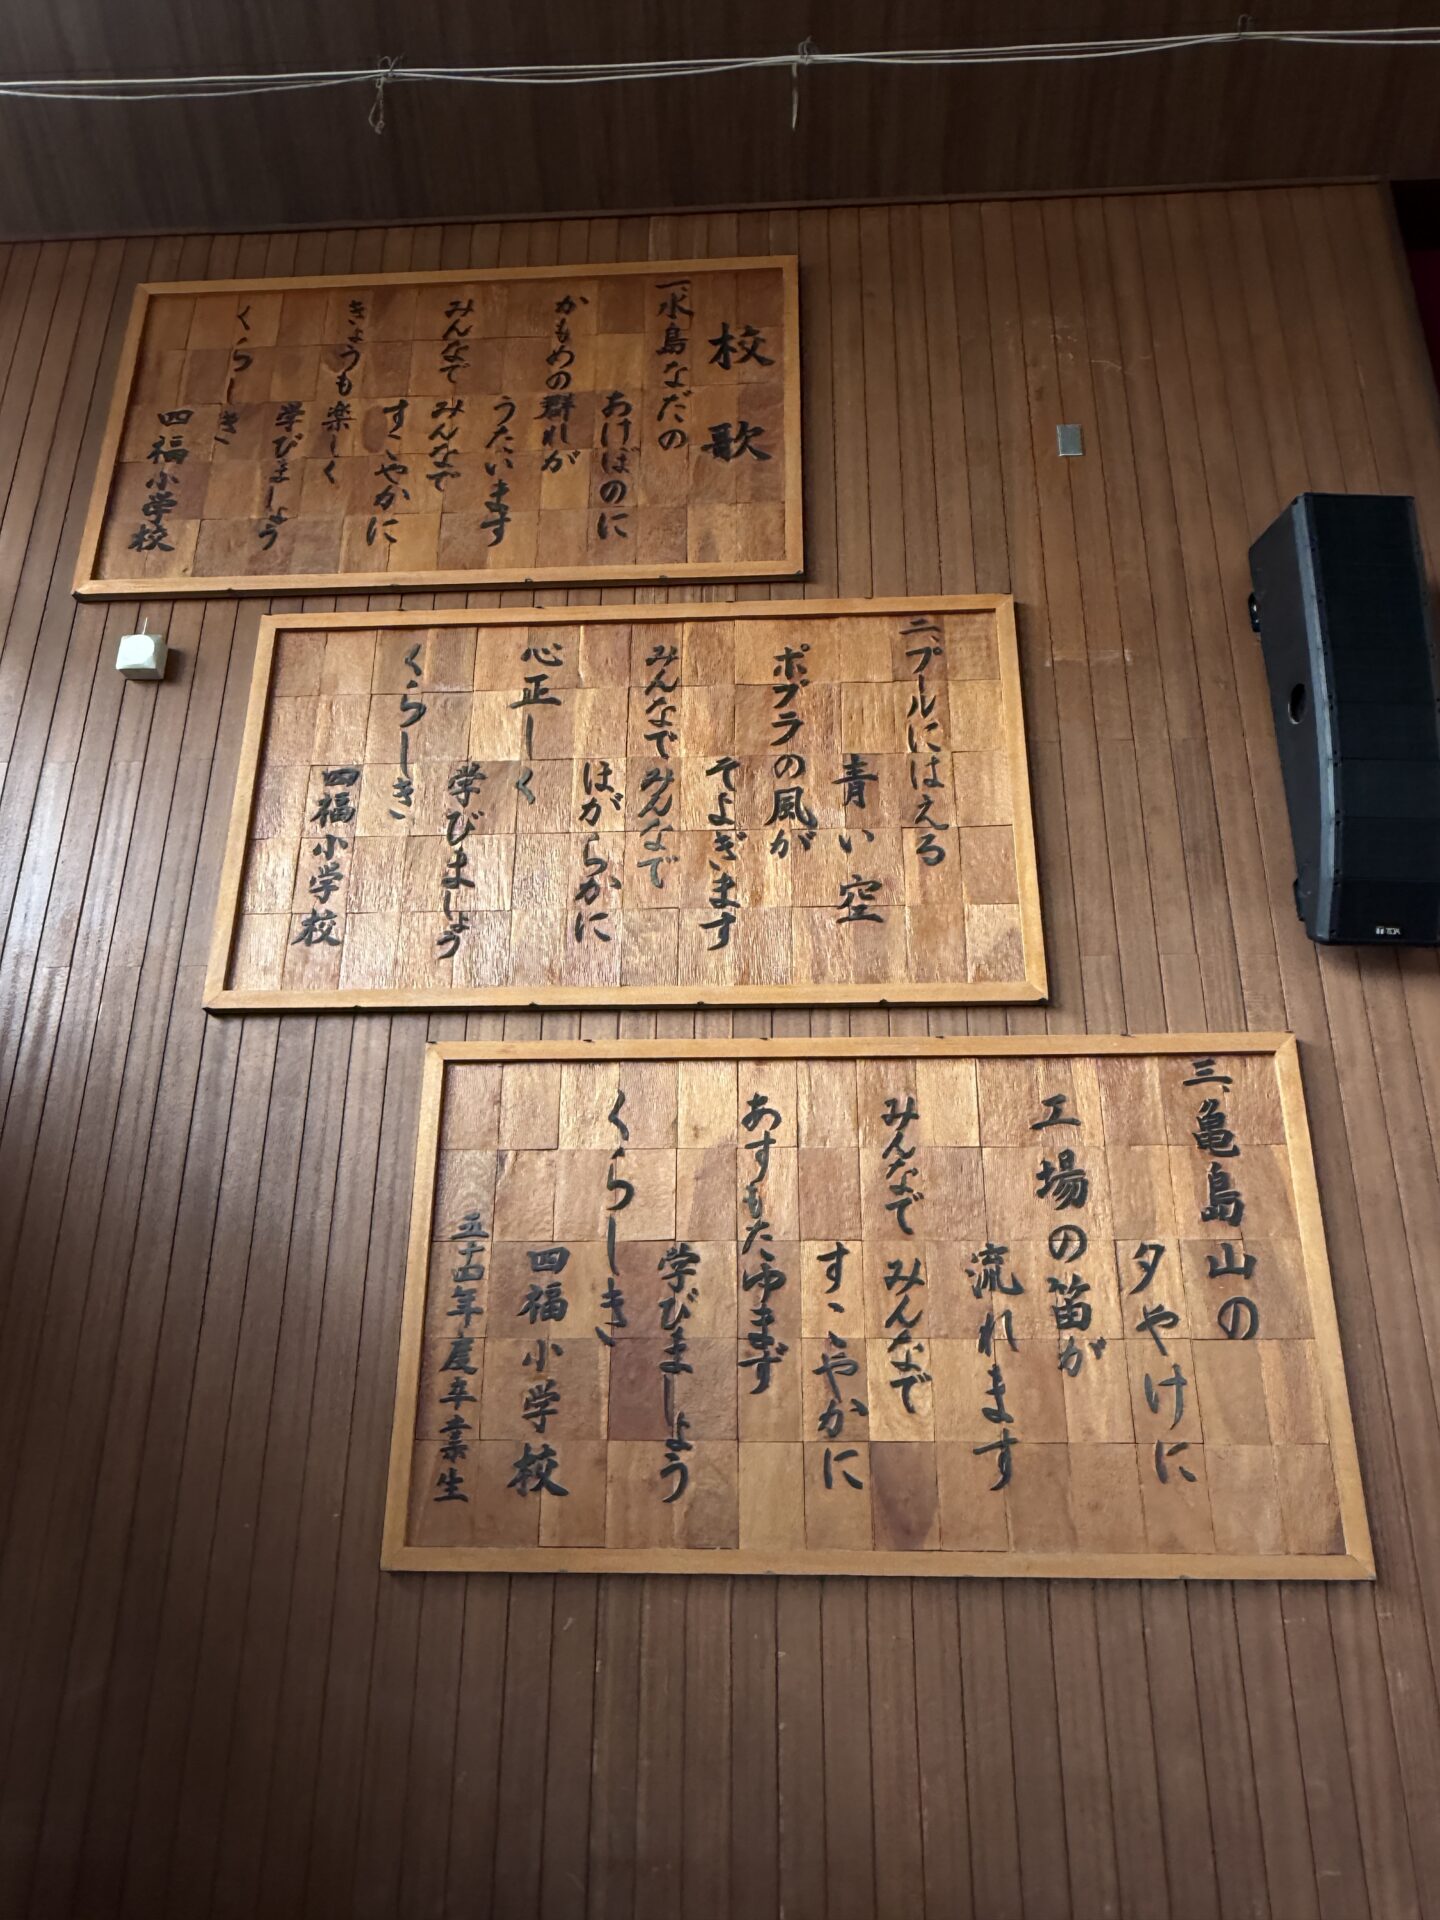 校歌
一、水島なだの
あけぼのに
かもめの群れが
うたいます
みんなで みんなで
すこやかに
きょうも楽しく
学びましょう
くらしき
四福小学校
二、プールにはえる
青い空
ポプラの風が
そよぎます
みんなでみんなで
ほがらかに
心正しく
学びましょう
くらしき
四福小学校
三、亀島山の
夕やけに
工場の笛が
流れます
みんなで みんなで
すこやかに
あすもたゆまず
学びましょう
くらしき
四福小学校
五十四年度卒業生
TOA